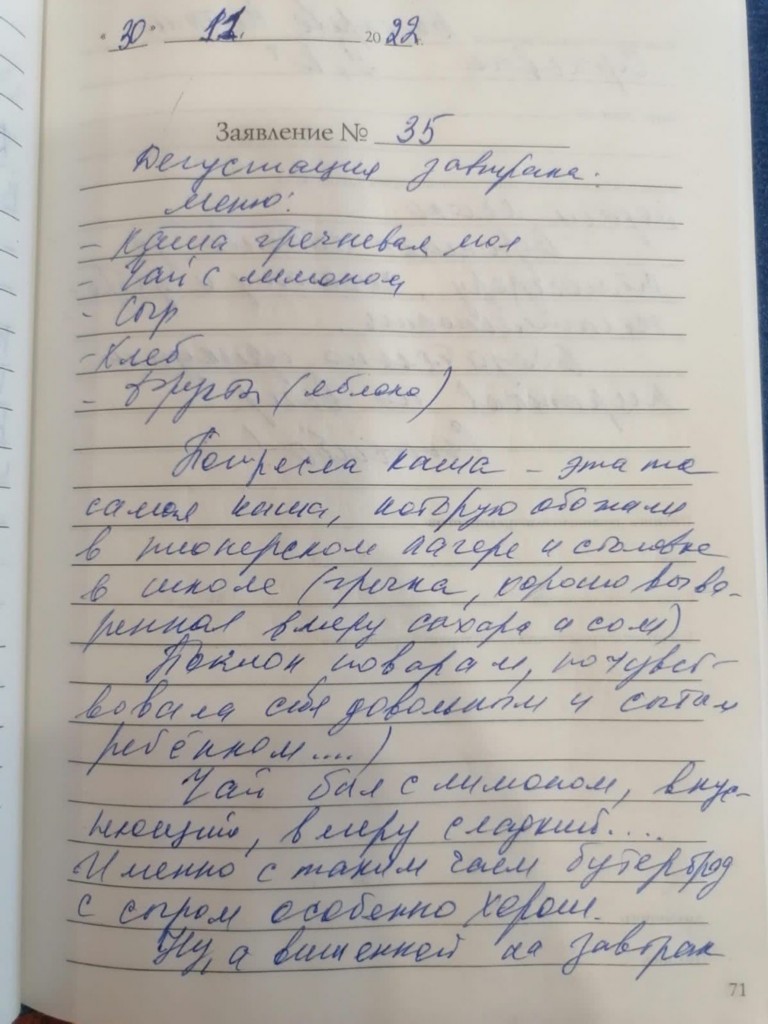 "30" 11. 2022 г.
Заявление № 35
Дегустация завтрака:
Меню:
- Каша гречневая мол
- Чай с лимоном
- Сыр
- Хлеб
- Фрукты (яблоко)
Потрясла каша - эта та
самая каша, которую обожали
в пионерском лагере и столовке
в школе (гречка, хорошо выва-
ренная в меру сахара и соли)
Поклон поварам, почувст-
вовала себя довольным и сытым
ребёнком....)
Чай был с лимоном, вкус-
нющий, в меру сладкий....
Именно с таким чаем бутерброд
с сыром особенно хорош.
Ну, а вишенкой на завтрак
71